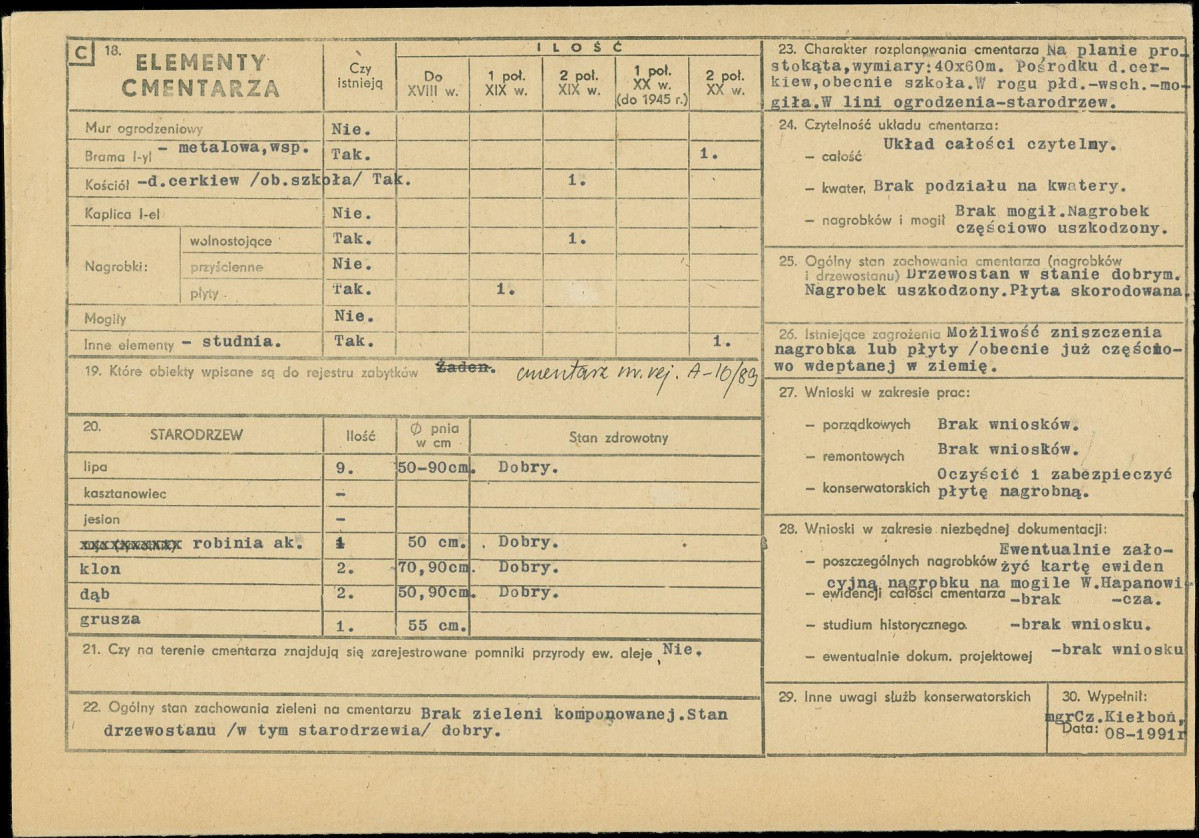 C 18. ELEMENTY
CMENTARZA
Czy
istnieją
ILOŚĆ
Do
XVIII w.
1 poł.
XIX w.
2 poł.
XIX w.
1 poł.
XX w.
(do 1945 r.)
2 poł.
XX w.
Mur ogrodzeniowy Nie.
Brama I-yl - metalowa,wsp. Tak. 1.
Kościół -d.cerkiew /ob.szkoła/ Tak. 1.
Kaplica I-el Nie.
Nagrobki:
wolnostojące Tak. 1.
przyścienne Nie.
płyty Tak. 1.
Mogiły Nie.
Inne elementy - studnia. Tak. 1.
19. Które obiekty wpisane są do rejestru zabytków Żaden. cmentarz nr. rej. A-10/89
20. STARODRZEW Ilość Ø pnia
w cm Stan zdrowotny
lipa 9. 50-90cm. Dobry.
kasztanowiec -
jesion -
robinia ak. 1 50 cm. Dobry.
klon 2. 70,90cm. Dobry.
dąb 2. 50,90cm. Dobry.
grusza 1. 55 cm.
21. Czy na terenie cmentarza znajdują się zarejestrowane pomniki przyrody ew. aleje Nie.
22. Ogólny stan zachowania zieleni na cmentarzu Brak zieleni komponowanej.Stan
drzewostanu /w tym starodrzewia/ dobry.
23. Charakter rozplanowania cmentarza Na planie pro
stokąta,wymiary:40x60m. Pośrodku d.cer-
kiew,obecnie szkoła.W rogu płd.-wsch.-mo-
giła.W lini ogrodzenia-starodrzew.
24. Czytelność układu cmentarza:
Układ całości czytelny.
- całość
- kwater, Brak podziału na kwatery.
- nagrobków i mogił Brak mogił.Nagrobek
częściowo uszkodzony.
25. Ogólny stan zachowania cmentarza (nagrobków
i drzewostanu) Drzewostan w stanie dobrym.
Nagrobek uszkodzony.Płyta skorodowana.
26. Istniejące zagrożenia Możliwość zniszczenia
nagrobka lub płyty /obecnie już częścio-
wo wdeptanej w ziemię.
27. Wnioski w zakresie prac:
- porządkowych Brak wniosków.
- remontowych Brak wniosków.
- konserwatorskich Oczyścić i zabezpieczyć
płytę nagrobną.
28. Wnioski w zakresie niezbędnej dokumentacji:
- poszczególnych nagrobków Ewentualnie zało-
żyć kartę ewiden
cyjną nagrobku na mogile W.Hapanowi-
- ewidencji całości cmentarza -brak -cza.
- studium historycznego. -brak wniosku.
- ewentualnie dokum. projektowej -brak wniosku
29. Inne uwagi służb konserwatorskich
30. Wypełnił:
mgrCz.Kiełboń,
Data: 08-1991r